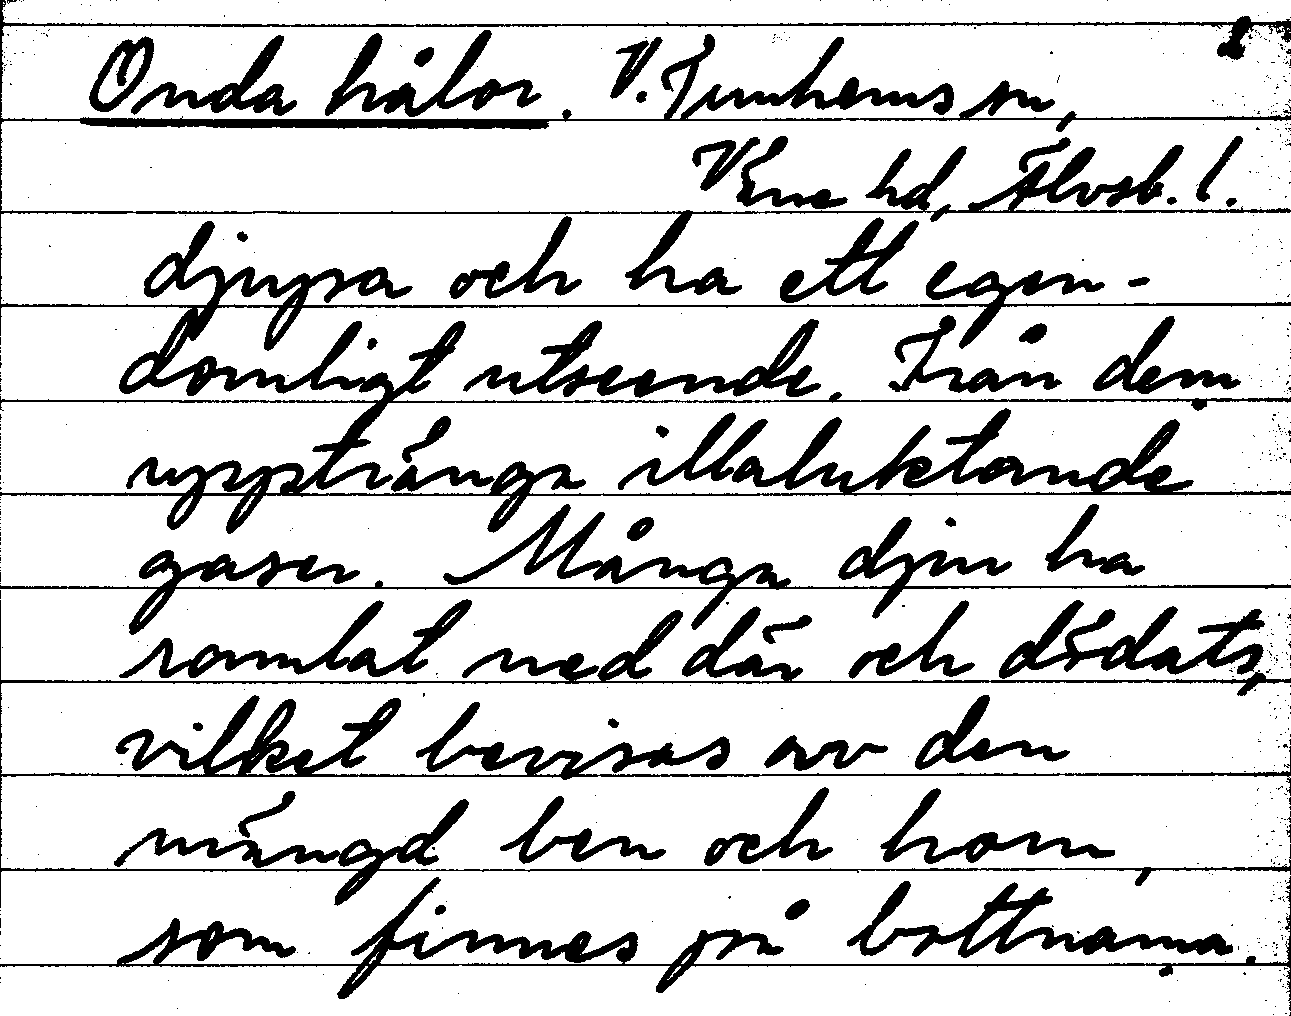 2
Onda hålor. V. Tunhems sn,
Väne hd, Älvsb. l.
djupa och ha ett egen-
domligt utseende. Från dem
upptränga illaluktande
gaser. Många djur ha
ramlat ned där och dödats,
vilket bevisas av den
mängd ben och horn,
som finnes på bottnarna.